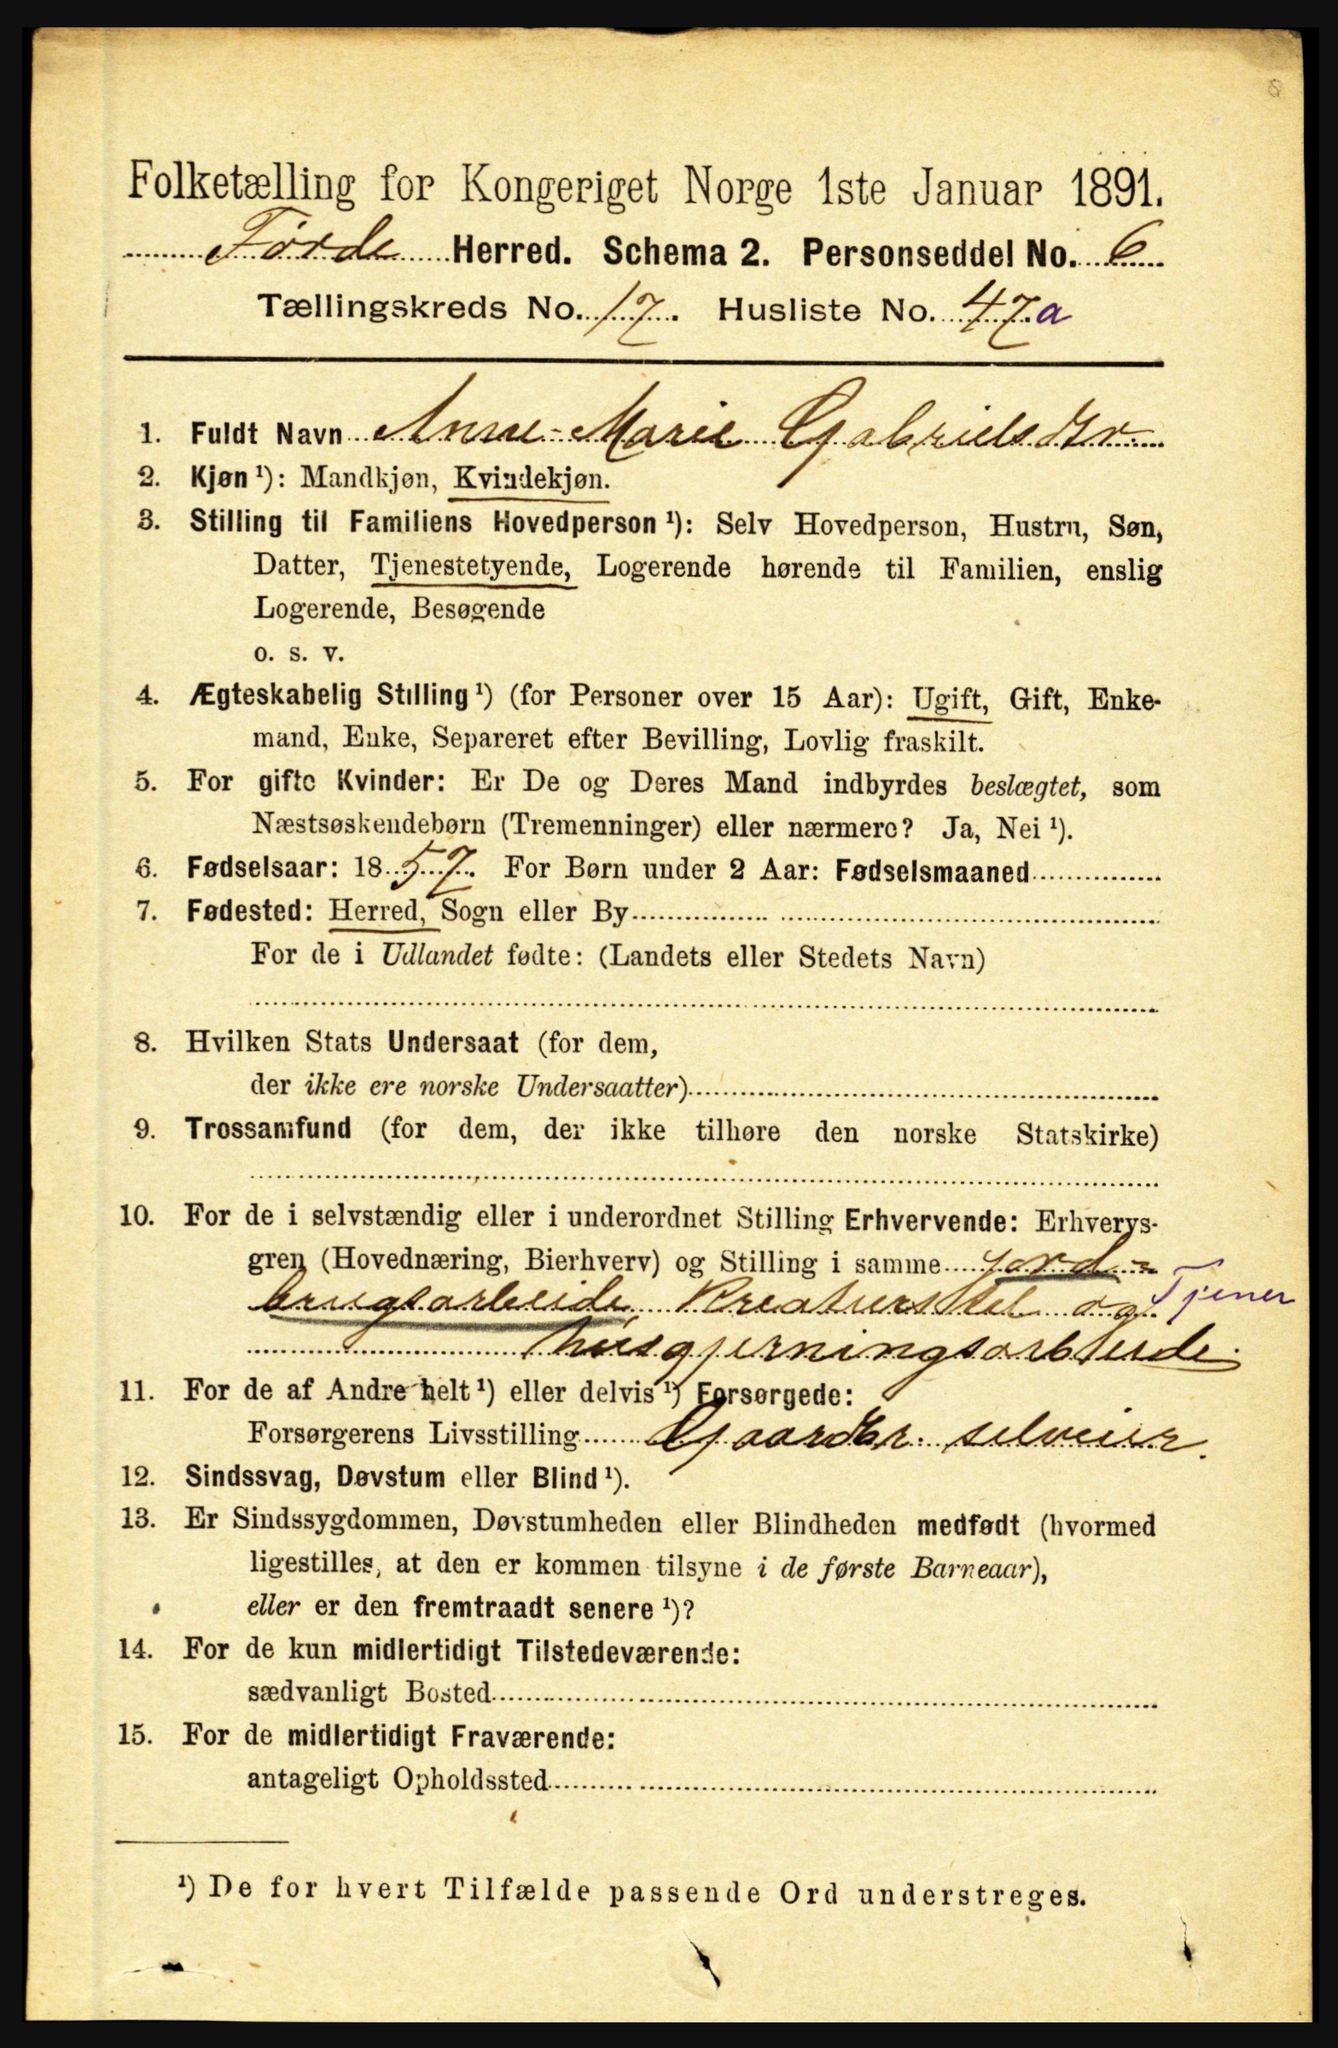 Folketælling for Kongeriget Norge 1ste Januar 1891.
Førde Herred. Schema 2. Personseddel No. 6
Tællingskreds No. 17. Husliste No. 47 a
1. Fuldt Navn Anne-Marie Gabrielsdtr
2. Kjøn ¹): Mandkjøn, Kvindekjøn.
3. Stilling til Familiens Hovedperson ¹): Selv Hovedperson, Hustru, Søn,
Datter, Tjenestetyende, Logerende hørende til Familien, enslig
Logerende, Besøgende
o. s. v.
4. Ægteskabelig Stilling ¹) (for Personer over 15 Aar): Ugift, Gift, Enke-
mand, Enke, Separeret efter Bevilling, Lovlig fraskilt.
5. For gifte Kvinder: Er De og Deres Mand indbyrdes beslægtet, som
Næstsøskendebørn (Tremenninger) eller nærmere? Ja, Nei ¹).
6. Fødselsaar: 1857. For Børn under 2 Aar: Fødselsmaaned
7. Fødested: Herred, Sogn eller By
For de i Udlandet fødte: (Landets eller Stedets Navn)
8. Hvilken Stats Undersaat (for dem,
der ikke ere norske Undersaatter)
9. Trossamfund (for dem, der ikke tilhøre den norske Statskirke)
10. For de i selvstændig eller i underordnet Stilling Erhvervende: Erhvervs-
gren (Hovednæring, Bierhverv) og Stilling i samme jord-
brugsarbeide Kreaturstel og Tjener
husgjerningsarbeide.
11. For de af Andre helt ¹) eller delvis ¹) Forsørgede:
Forsørgerens Livsstilling Gaardbr. selveier.
12. Sindssvag, Døvstum eller Blind ¹).
13. Er Sindssygdommen, Døvstumheden eller Blindheden medfødt (hvormed
ligestilles, at den er kommen tilsyne i de første Barneaar),
eller er den fremtraadt senere ¹)?
14. For de kun midlertidigt Tilstedeværende:
sædvanligt Bosted
15. For de midlertidigt Fraværende:
antageligt Opholdssted
¹) De for hvert Tilfælde passende Ord understreges.